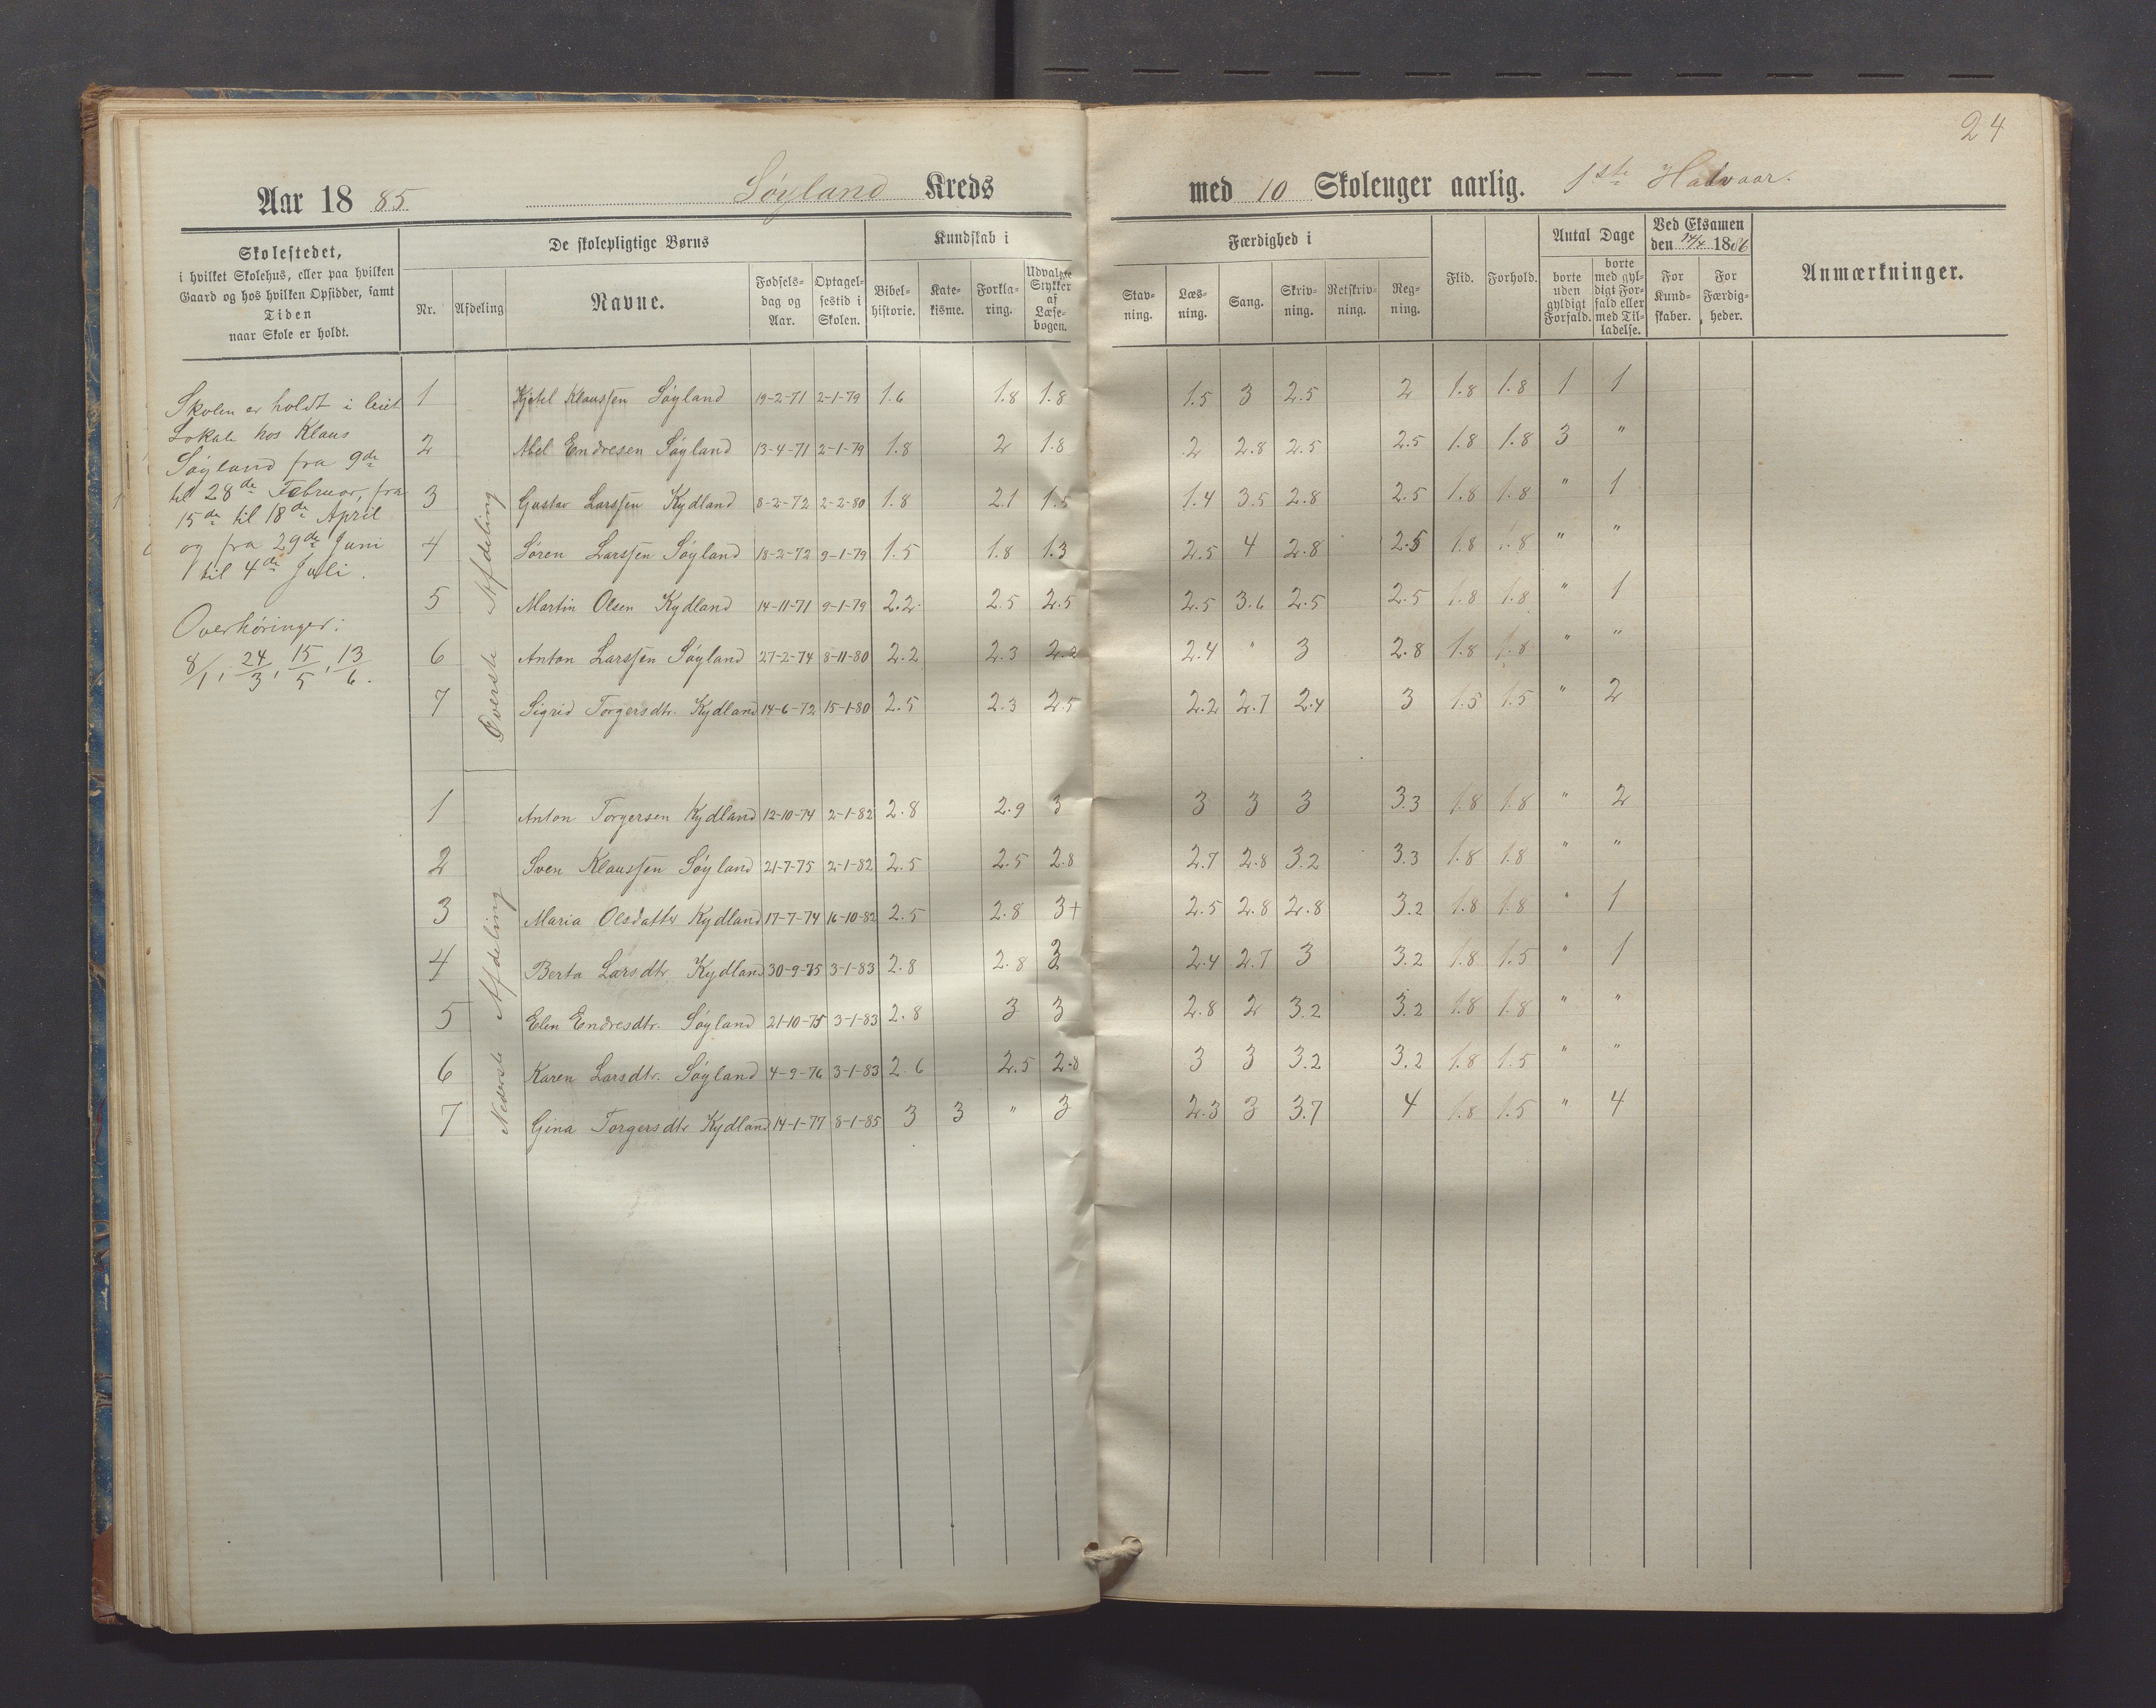 24
Aar 1885 Søyland Kreds med 10 Skoleuger aarlig. 1ste Halvaar.
Skolestedet,
i hvilket Skolehus, eller paa hvilken
Gaard og hos hvilken Opsidder, samt
Tiden
naar Skole er holdt.
De skolepligtige Børns
Nr. Afdeling Navne. Fødselsdag og Aar. Optagelsestid i Skolen.
Kundskab i
Bibelhistorie. Katekisme. Forklaring. Udvalgte Stykker af Læsebogen.
Færdighed i
Stavning. Læsning. Sang. Skrivning. Retskrivning. Regning.
Flid. Forhold.
Antal Dage
borte uden gyldigt Forfald. borte med gyldigt Forfald eller med Tilladelse.
Ved Eksamen
den 14/4 1886
For Kundskaber. For Færdigheder.
Anmærkninger.
Skolen er holdt i leiet
Lokale hos Klaus
Søyland fra 9de
til 28de Februar, fra
15de til 18de April
og fra 29de Juni
til 4de Juli.
Overhøringer:
8/1, 24/3, 15/5, 13/6.
Øverste Afdeling
1 Kjetel Klaussen Søyland 19-2-71 2-1-79 1.6 1.8 1.8 1.5 3 2.5 2 1.8 1.8 1 1
2 Abel Endresen Søyland 13-4-71 2-1-79 1.8 2 1.8 2 2.8 2.5 2.5 1.8 1.8 3 "
3 Gustav Larssen Kydland 8-2-72 2-2-80 1.8 2.1 1.5 1.4 3.5 2.8 2.5 1.8 1.8 " 1
4 Søren Larssen Søyland 18-2-72 9-1-79 1.5 1.8 1.3 2.5 4 2.8 2.5 1.8 1.8 " "
5 Martin Olsen Kydland 14-11-71 9-1-79 2.2 2.5 2.5 2.5 3.6 2.5 2.5 1.8 1.8 " 1
6 Anton Larssen Søyland 27-2-74 8-11-80 2.2 2.3 2.2 2.4 " 3 2.8 1.8 1.8 " "
7 Sigrid Torgersdtr. Kydland 14-6-72 15-1-80 2.5 2.3 2.5 2.2 2.7 2.4 3 1.5 1.5 " 2
Nederste Afdeling
1 Anton Torgersen Kydland 12-10-74 2-1-82 2.8 2.9 3 3 3 3 3.3 1.8 1.8 " 2
2 Sven Klaussen Søyland 21-7-75 2-1-82 2.5 2.5 2.8 2.7 2.8 3.2 3.3 1.8 1.8 " "
3 Maria Olsdatter Kydland 17-7-74 16-10-82 2.5 2.8 3+ 2.5 2.8 2.8 3.2 1.8 1.8 " 1
4 Berta Larsdtr. Kydland 30-9-75 3-1-83 2.8 2.8 3 2.4 2.7 3 3.2 1.8 1.5 " 1
5 Elen Endresdtr. Søyland 21-10-75 3-1-83 2.8 3 3 2.8 2 3.2 3.2 1.8 1.8 " "
6 Karen Larsdtr. Søyland 4-9-76 3-1-83 2.6 2.5 2.8 3 3 3.2 3.2 1.8 1.5 " "
7 Gina Torgersdtr Kydland 14-1-77 8-1-85 3 3 " 3 2.3 3 3.7 4 1.8 1.5 " 4